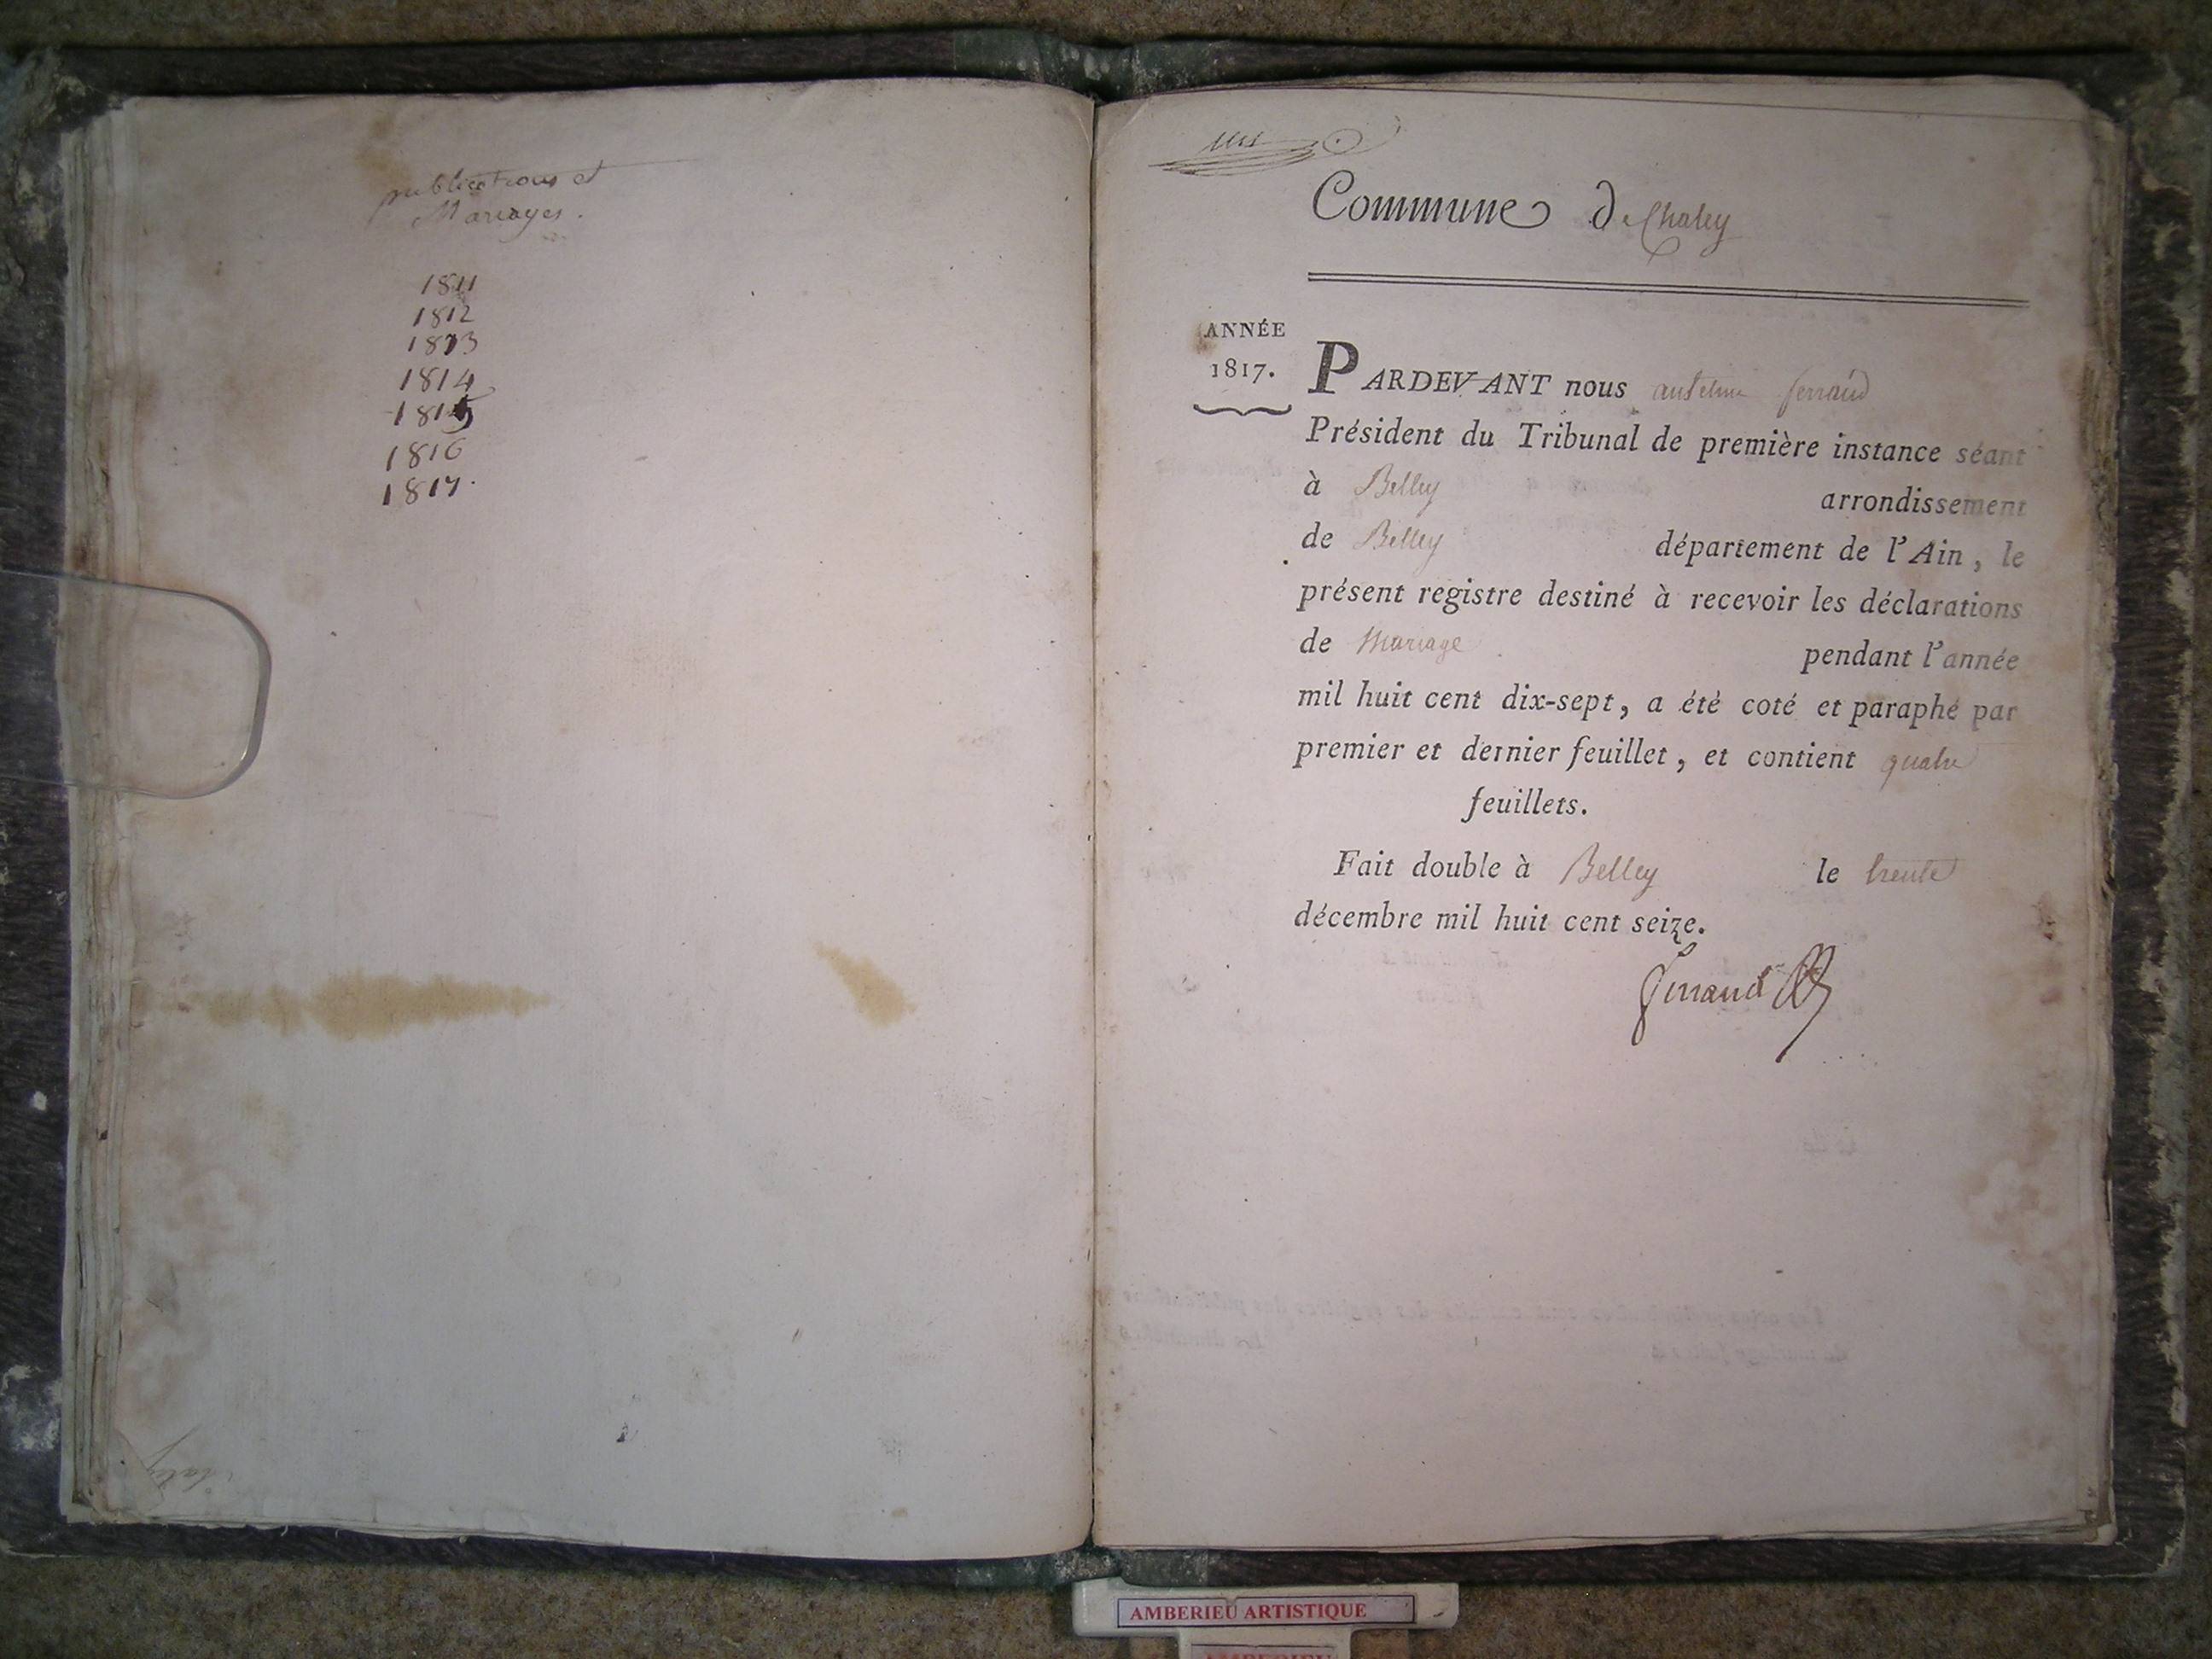 publications et
Mariages.
1811
1812
1813
1814
1815
1816
1817.
Commune de Chaley
ANNÉE
1817.
PARDEVANT nous anselme ferrand
Président du Tribunal de première instance séant
à Belley arrondissement
de Belley département de l'Ain, le
présent registre destiné à recevoir les déclarations
de Mariage pendant l'année
mil huit cent dix-sept, a été coté et paraphé par
premier et dernier feuillet, et contient quatre
feuillets.
Fait double à Belley le trente
décembre mil huit cent seize.
Ferrand
AMBERIEU ARTISTIQUE
AMBERIEU